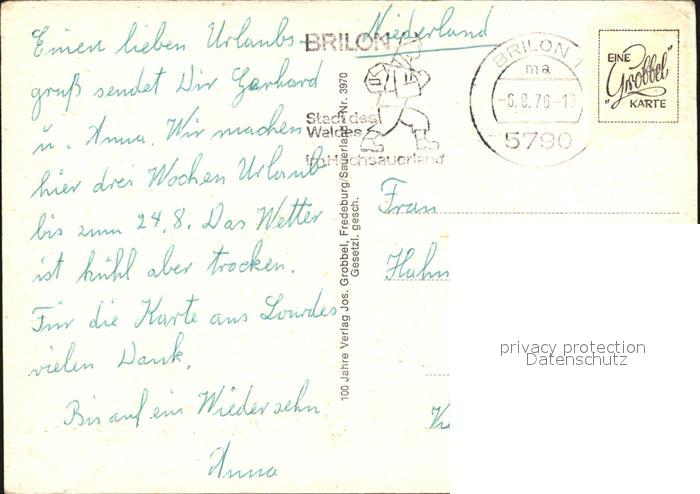 Einen lieben Urlaubs-
gruß sendet Dir Gerhard
u. Anna. Wir machen
hier drei Wochen Urlaub
bis zum 24.8. Das Wetter
ist kühl aber trocken.
Für die Karte aus Lourdes
vielen Dank.
Bis auf ein Wiedersehn
Anna
Niederland
BRILON
Stadt des
Waldes
im Hochsauerland
BRILON 1
ma
-6.8.76-1
5790
EINE
"Grobbel"
KARTE
100 Jahre Verlag Jos. Grobbel, Fredeburg/Sauerland Nr. 3970
Gesetzl. gesch.
Frau
Hahn
privacy protection
Datenschutz